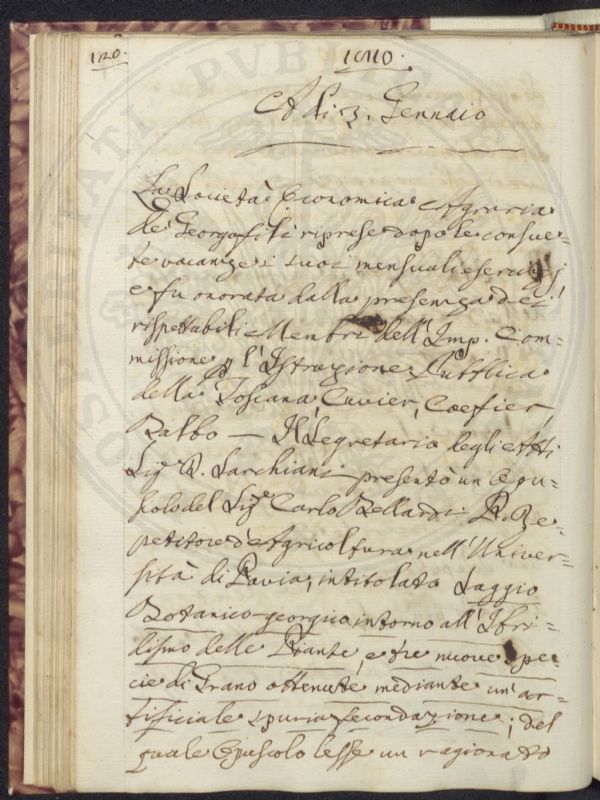 120.
1810.
A di 3. Gennaio
La Società Economica Agraria
de' Georgofili riprese dopo le consue=
te vacanze i suoi mensuali esercizj
e fu onorata dalla presenza dei
rispettabili Membri dell' Imp. Com=
missione p l'Istruzione Pubblica
della Toscana Cuvier, Coefier,
Balbo — Il Segretario degli Atti
Sig. D. Sarchiani presentò un Opu=
scolo del Sig.e Carlo Bellardi R. Re=
petitore d'Agricoltura nell' Univer=
sità di Pavia, intitolato Saggio
Botanico-georgico intorno all' Ibri=
dismo delle Piante, e tre nuove spe=
cie di Grano ottenute mediante un' ar=
tificiale spuria fecondazione; del
quale Opuscolo lesse un ragionato
SOCIETATI PUBLICAE